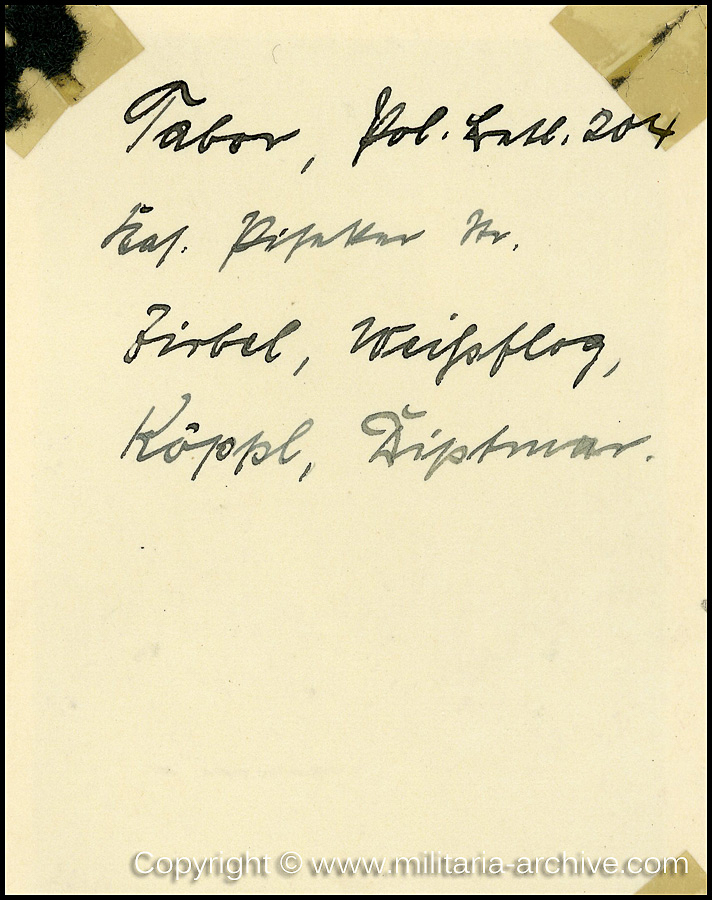 Tabor, Pol. Batl. 204
Kas. Piseker Str.
Zirbel, Weißpflog,
Köppl, Diptmar.
Copyright © www.militaria-archive.com